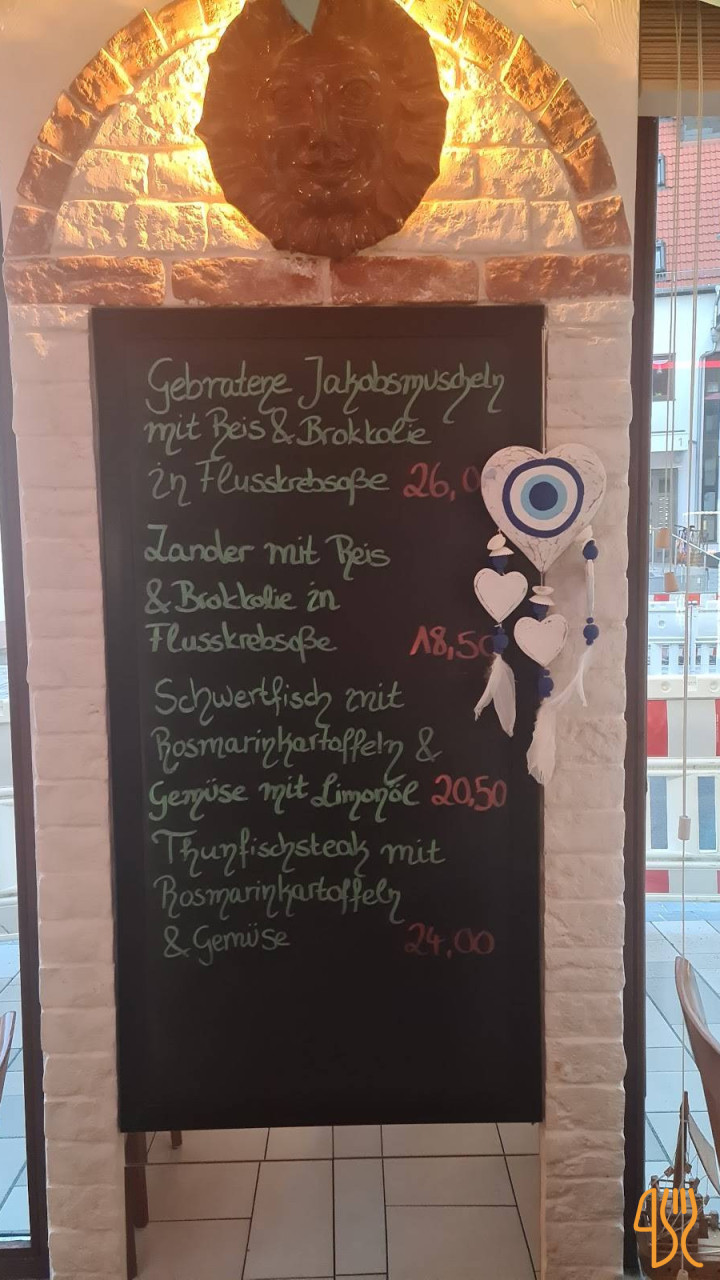 Gebratene Jakobsmuscheln
mit Reis & Brokkolie
in Flusskrebsoße 26,0
Zander mit Reis
& Brokkolie in
Flusskrebsoße 18,50
Schwertfisch mit
Rosmarinkartoffeln &
Gemüse mit Limonöl 20,50
Thunfischsteak mit
Rosmarinkartoffeln
& Gemüse 24,00